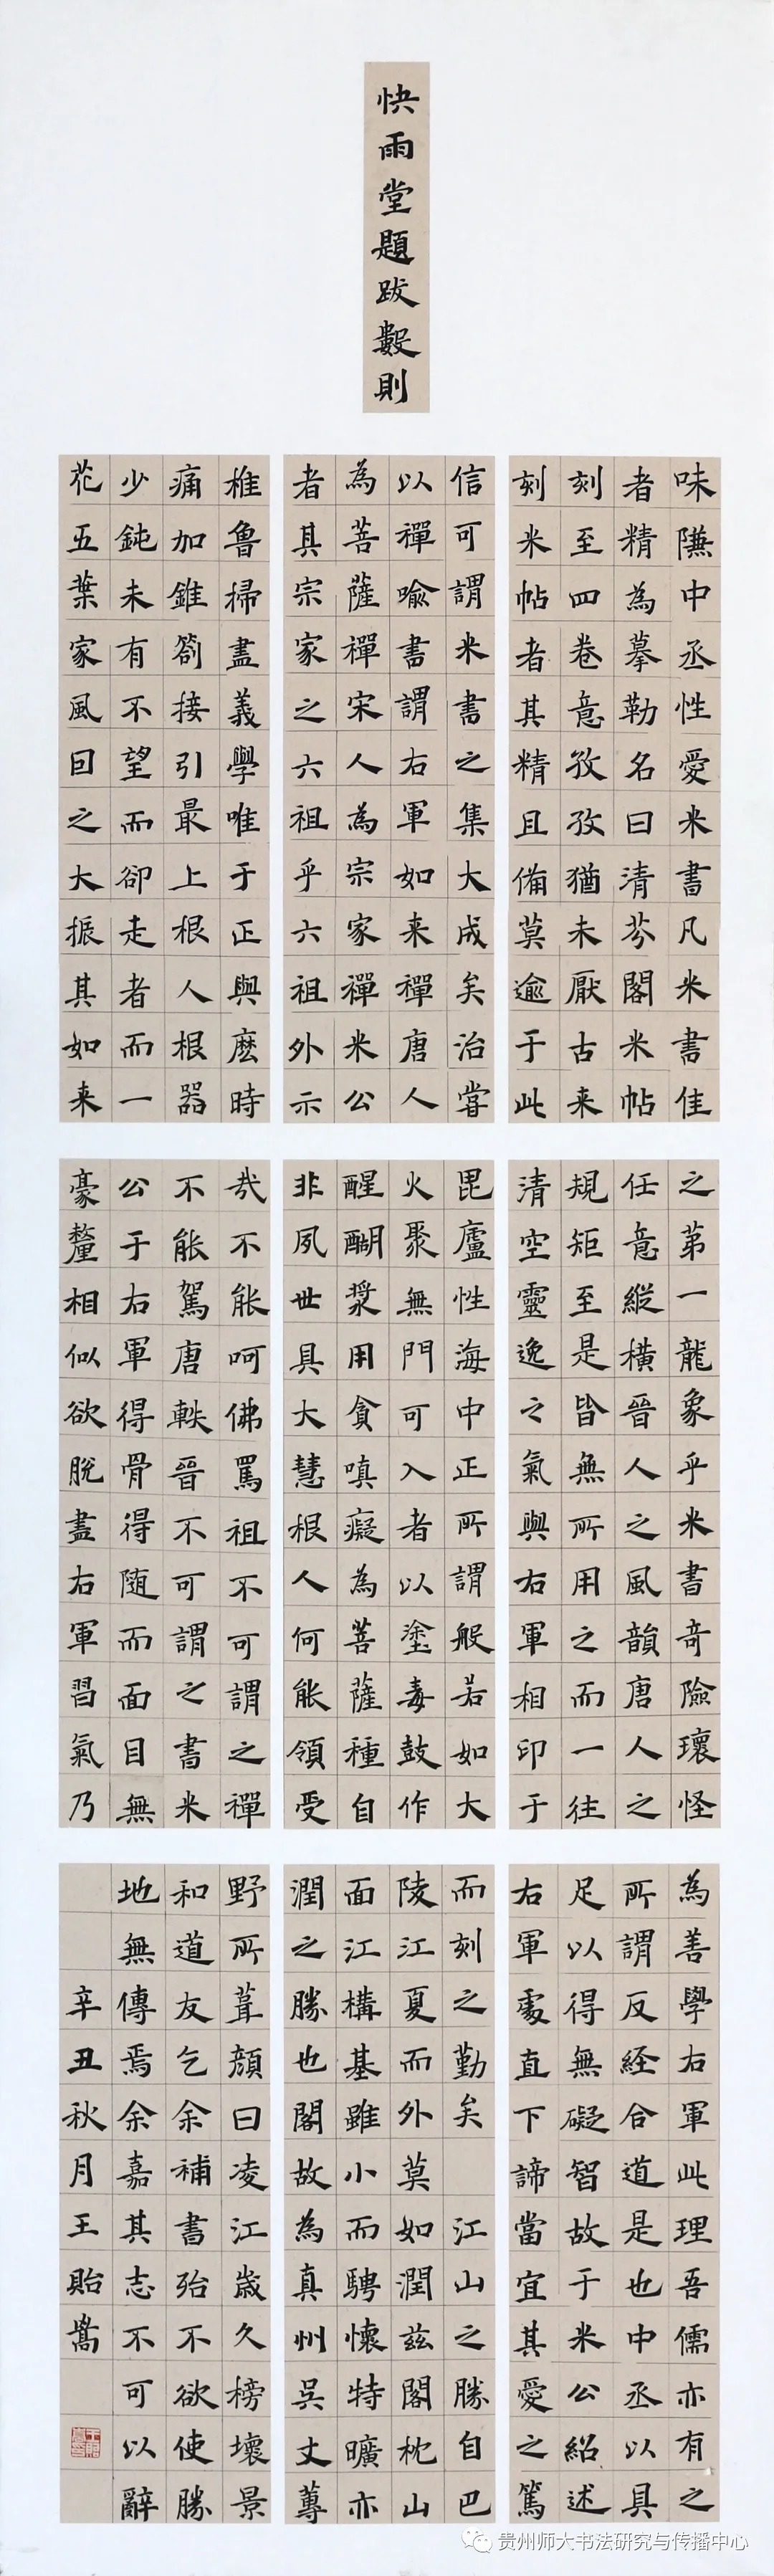 快雨堂題跋數則
味隒中丞性愛米書凡米書佳
者精為摹勒名曰清芬閣米帖
刻至四卷意孜孜猶未厭古来
刻米帖者其精且備莫逾于此
信可謂米書之集大成矣治嘗
以禪喻書謂右軍如来禪唐人
為菩薩禪宋人為宗家禪米公
者其宗家之六祖乎六祖外示
椎魯掃盡義學唯于正與麽時
痛加錐劄接引最上根人根器
少鈍未有不望而卻走者而一
花五葉家風回之大振其如来
之苐一龍象乎米書奇險瓌怪
任意縱橫晉人之風韻唐人之
規矩至是皆無所用之而一往
清空靈逸之氣與右軍相印于
毘盧性海中正所謂般若如大
火聚無門可入者以塗毒鼓作
醒醐漿用貪嗔癡為菩薩種自
非夙世具大慧根人何能領受
㢤不能呵佛罵祖不可謂之禪
不能駕唐軼晉不可謂之書米
公于右軍得骨得随而面目無
豪釐相似欲脫盡右軍習氣乃
為善學右軍此理吾儒亦有之
所謂反経合道是也中丞以具
足以得無礙智故于米公紹述
右軍處直下諦當宜其愛之篤
而刻之勤矣 江山之勝自巴
陵江夏而外莫如潤茲閣枕山
面江構基雖小而騁懷特曠亦
潤之勝也閣故為真州吳丈蓴
野所葺顏曰凌江歲久榜壞景
和道友乞余補書殆不欲使勝
地無傳焉余嘉其志不可以辭
辛丑秋月王貽嵩
贵州师大书法研究与传播中心